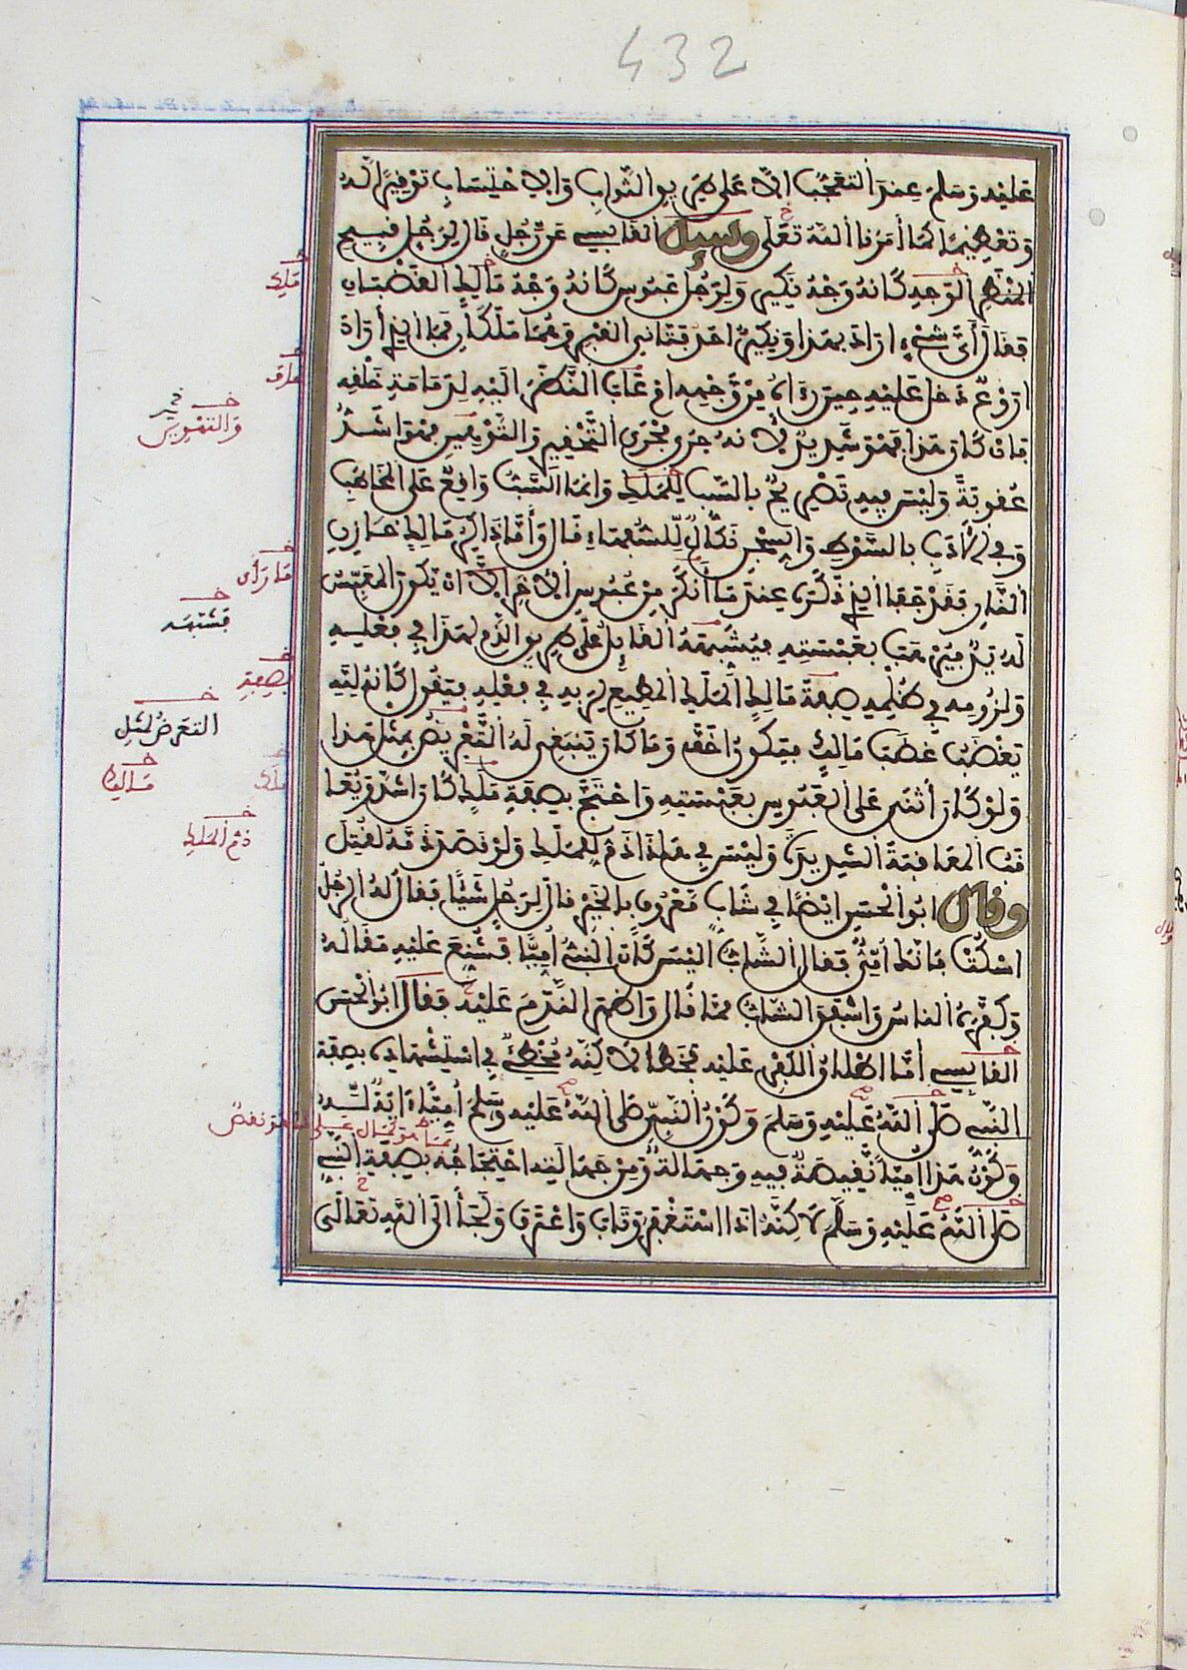 432
عليه وسلم عند التعجب الا على طريق الثواب والاحتساب توفيرا له
وتعظيما كما أمرنا الله تعلى وسيل القابسي عن رجل قال لرجل قبيح
المنظر الوجه كانه وجه نكير ولرجل عبوس كانه وجه مالك الغضبان
فقال أي شيء اراد بهذا ونكير احد فتاني القبر وهما ملكان فما الذي اراد
اروع دخل عليه حين رءاه من وجهه ام عاب النظر اليه لدمامة خلقه
فان كان هذا فهو شديد لأنه جرى مجرى التحقير والتهوين فهو اشد
عقوبة وليس فيه تصريح بالسب للملك وانما السب واقع على المخاطب
وفي الأدب بالسوط والسجن نكال للسفهاء قال وأما ذاكر مالك خازن
النار فقد جفا الذي ذكره عند ما أنكر من عبوس الاخر الا ان يكون المعبس
له يد فيرهب بعبسته فيشبهه القايل على طريق الذم لهذا في فعله
ولزومه في ظلمه صفة مالك الملك المطيع لربه في فعله فيقول كانه لله
يغضب غضب مالك فيكون اخف وما كان ينبغي له التعريض بمثل هذا
ولو كان أثنى على العبوس بعبسته واحتج بصفة ملك كان اشد ويعا
قب المعاقبة الشديدة وليس في هذا ذم للملك ولو قصد ذمه لقتل
وقال ابو الحسن ايضا في شاب معروف بالخير قال لرجل شيئا فقال له الرجل
اسكت فانك أمي فقال الشاب اليس كان النبي أميا فشنع عليه مقاله
وكفره الناس واشفق الشاب مما قال واظهر الندم عليه فقال ابو الحسن
القابسي أما اطلاق الكفر عليه فخطأ لاكنه مخطئ في استشهاده بصفة
النبي صلى الله عليه وسلم وكون النبي صلى الله عليه وسلم أميا ءاية له
وكون هذا اميا نقيصة فيه وجهالة ومن جهالته احتجاجه بصفة النبي
صلى الله عليه وسلم لاكنه اذا استغفر وتاب واعترف ولجأ الى الله تعالى
ملك
والتهوين
ما رأى
فشبهه
بصفة
التعرض لمثل
مالك
ملك
ذم الملك